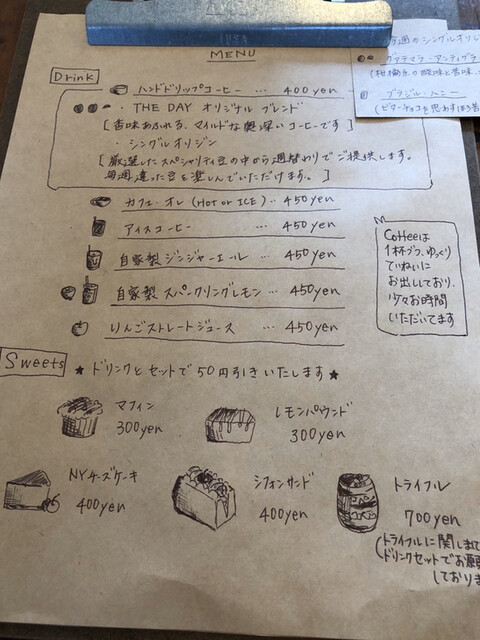 MENU
Drink
ハンドドリップコーヒー … 400yen
・THE DAY オリジナル ブレンド
[香味あふれる、マイルドな奥深いコーヒーです]
・シングルオリジン
[厳選したスペシャリティ豆の中から週替わりでご提供します。
毎週違った豆を楽しんでいただけます。]
カフェ・オレ (Hot or ICE) … 450yen
アイスコーヒー … 450yen
自家製 ジンジャーエール … 450yen
自家製 スパークリングレモン … 450yen
りんごストレートジュース … 450yen
Coffeeは
1杯ずつ、ゆっくり
ていねいに
お出ししており、
少々お時間
いただいてます
Sweets
★ドリンクとセットで50円引きいたします★
マフィン
300yen
レモンパウンド
300yen
NYチーズケーキ
400yen
シフォンサンド
400yen
トライフル
700yen
(トライフルに関しまし
ドリンクセットでお願
しておりま
週のシングルオリジ
グァテマラ・アンティグア
(柑橘系の酸味と香味
ブラジル・ハニー
(ビターチョコを思わすほう